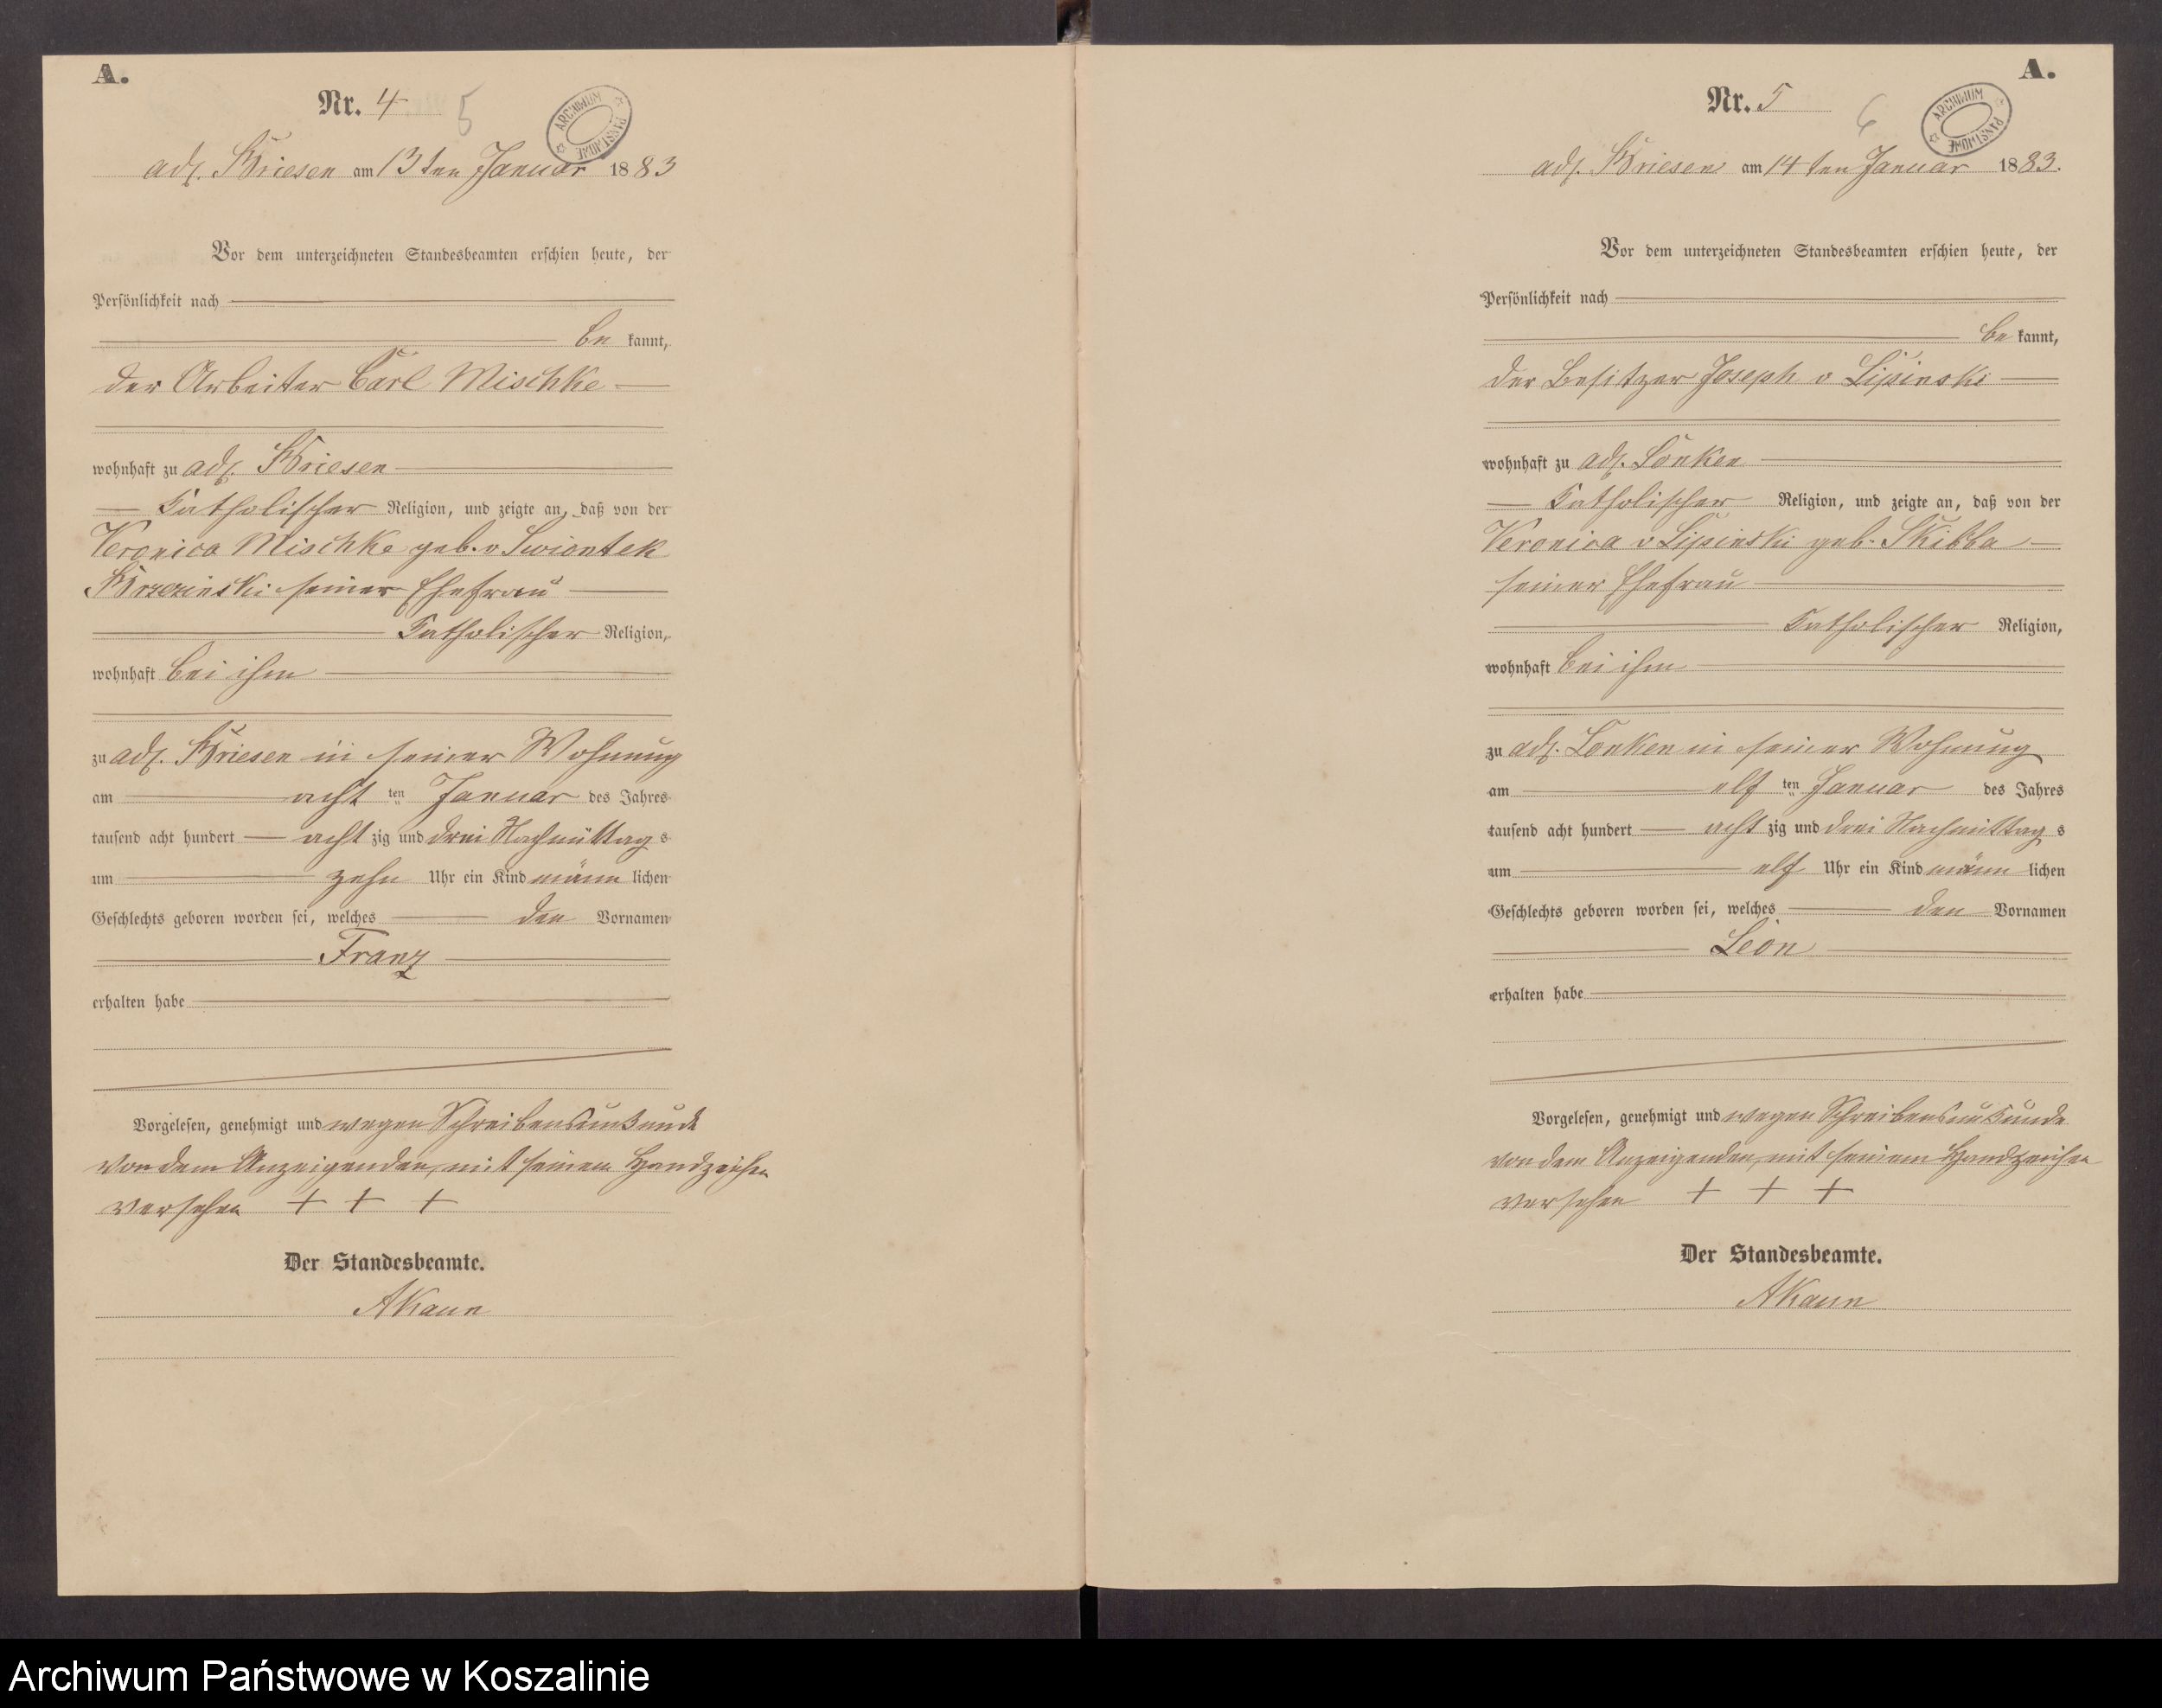 A.
Nr. 4
5
ARCHIWUM PAŃSTWOWE
adl. Briesen am 13ten Januar 1883
Vor dem unterzeichneten Standesbeamten erschien heute, der
Persönlichkeit nach
be kannt,
der Arbeiter Carl Mischke
wohnhaft zu adl. Briesen
Katholischer Religion, und zeigte an, daß von der
Veronica Mischke geb. v Swiontek
Brzezinski seiner Ehefrau
Katholischer Religion,
wohnhaft bei ihm
zu adl. Briesen in seiner Wohnung
am acht ten Januar des Jahres
tausend acht hundert acht zig und drei Nachmittag s
um zehn Uhr ein Kind männ lichen
Geschlechts geboren worden sei, welches den Vornamen
Franz
erhalten habe
Vorgelesen, genehmigt und wegen Schreibensunkunde
von dem Anzeigenden, mit seinem Handzeichen
versehen + + +
Der Standesbeamte.
AKaun
A.
Nr. 5
6
ARCHIWUM PAŃSTWOWE
adl. Briesen am 14ten Januar 1883.
Vor dem unterzeichneten Standesbeamten erschien heute, der
Persönlichkeit nach
be kannt,
der Besitzer Joseph v Lipinski
wohnhaft zu adl. Lonken
Katholischer Religion, und zeigte an, daß von der
Veronica v Lipinski geb. Skibba
seiner Ehefrau
Katholischer Religion,
wohnhaft bei ihm
zu adl. Lonken in seiner Wohnung
am elf ten Januar des Jahres
tausend acht hundert acht zig und drei Nachmittag s
um elf Uhr ein Kind männ lichen
Geschlechts geboren worden sei, welches den Vornamen
Leon
erhalten habe
Vorgelesen, genehmigt und wegen Schreibensunkunde
von dem Anzeigenden, mit seinem Handzeichen
versehen + + +
Der Standesbeamte.
AKaun
Archiwum Państwowe w Koszalinie